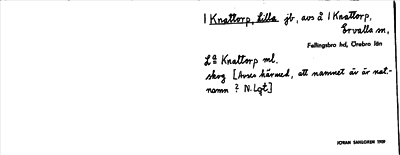 1 Knattorp, Lilla jb, avs å 1 Knattorp,
Ervalla sn,
Fellingsbro hd, Örebro län
La Knattorp ml.
skog [Avses härmed, att namnet är är nat.-
namn ? N.Lgt]
JOHAN SAHLGREN 1909